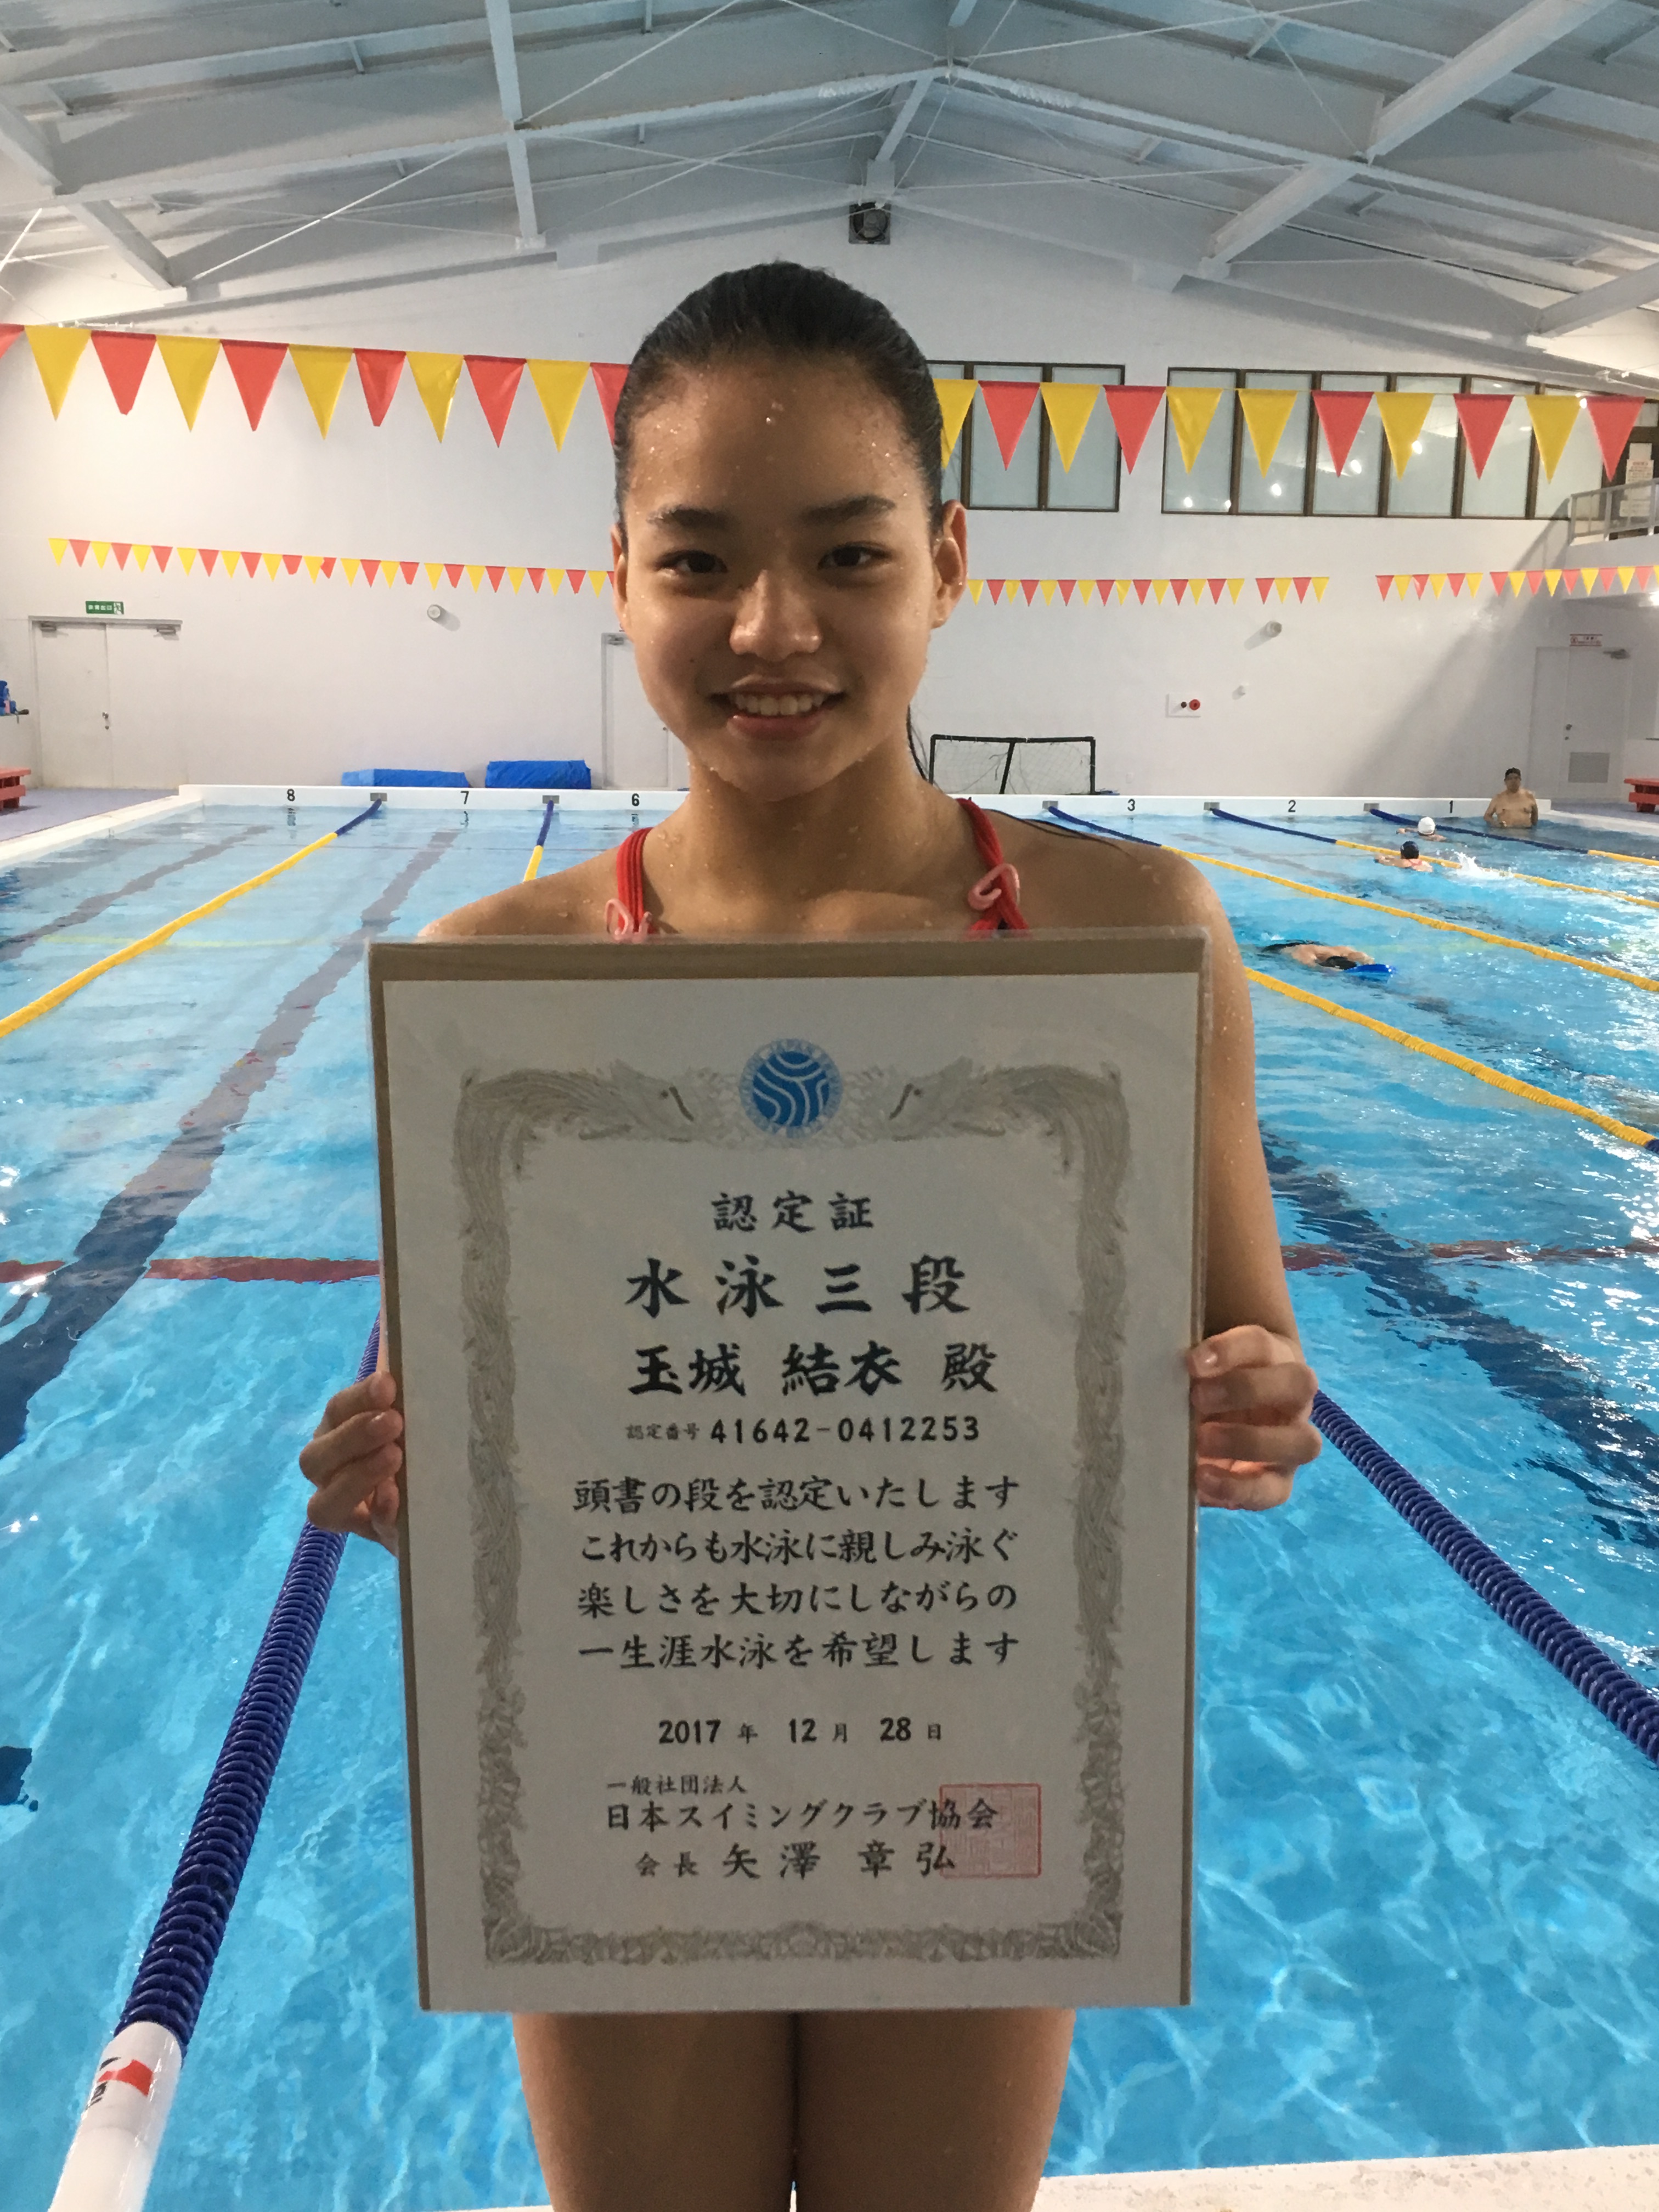 8
7
6
3
2
1
認定証
水泳三段
玉城 結衣 殿
認定番号 41642-0412253
頭書の段を認定いたします
これからも水泳に親しみ泳ぐ
楽しさを大切にしながらの
一生涯水泳を希望します
2017 年 12 月 28 日
一般社団法人
日本スイミングクラブ協会
会長 矢澤 章弘